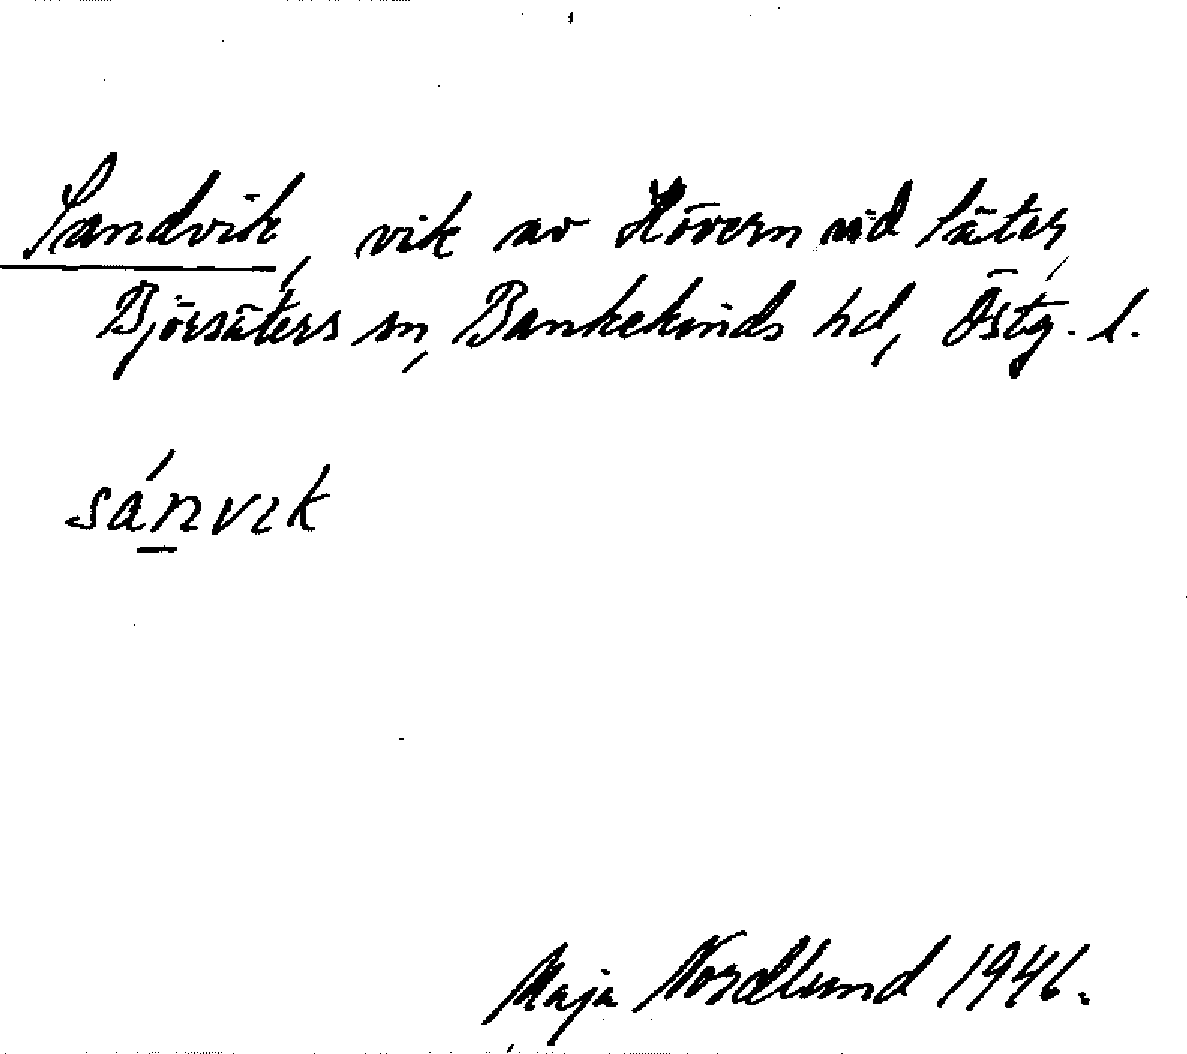 Sandvik, vik av Hövern vid Säter,
Björsäters sn, Bankekinds hd, Östg. l.
sánvik
Maja Nordlund 1946.